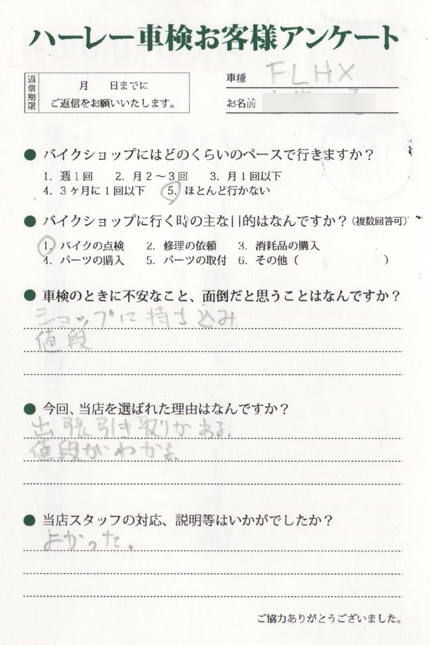 ハーレー車検お客様アンケート
返信期限
月　日までに
ご返信をお願いいたします。
車種 FLHX
お名前
● バイクショップにはどのくらいのペースで行きますか？
1. 週1回　2. 月2〜3回　3. 月1回以下
4. 3ヶ月に1回以下　5. ほとんど行かない
● バイクショップに行く時の主な目的はなんですか？（複数回答可）
1. バイクの点検　2. 修理の依頼　3. 消耗品の購入
4. パーツの購入　5. パーツの取付　6. その他（　　　）
● 車検のときに不安なこと、面倒だと思うことはなんですか？
ショップに持ち込み
値段
● 今回、当店を選ばれた理由はなんですか？
出張引き取りがある。
値段がわかる。
● 当店スタッフの対応、説明等はいかがでしたか？
よかった。
ご協力ありがとうございました。